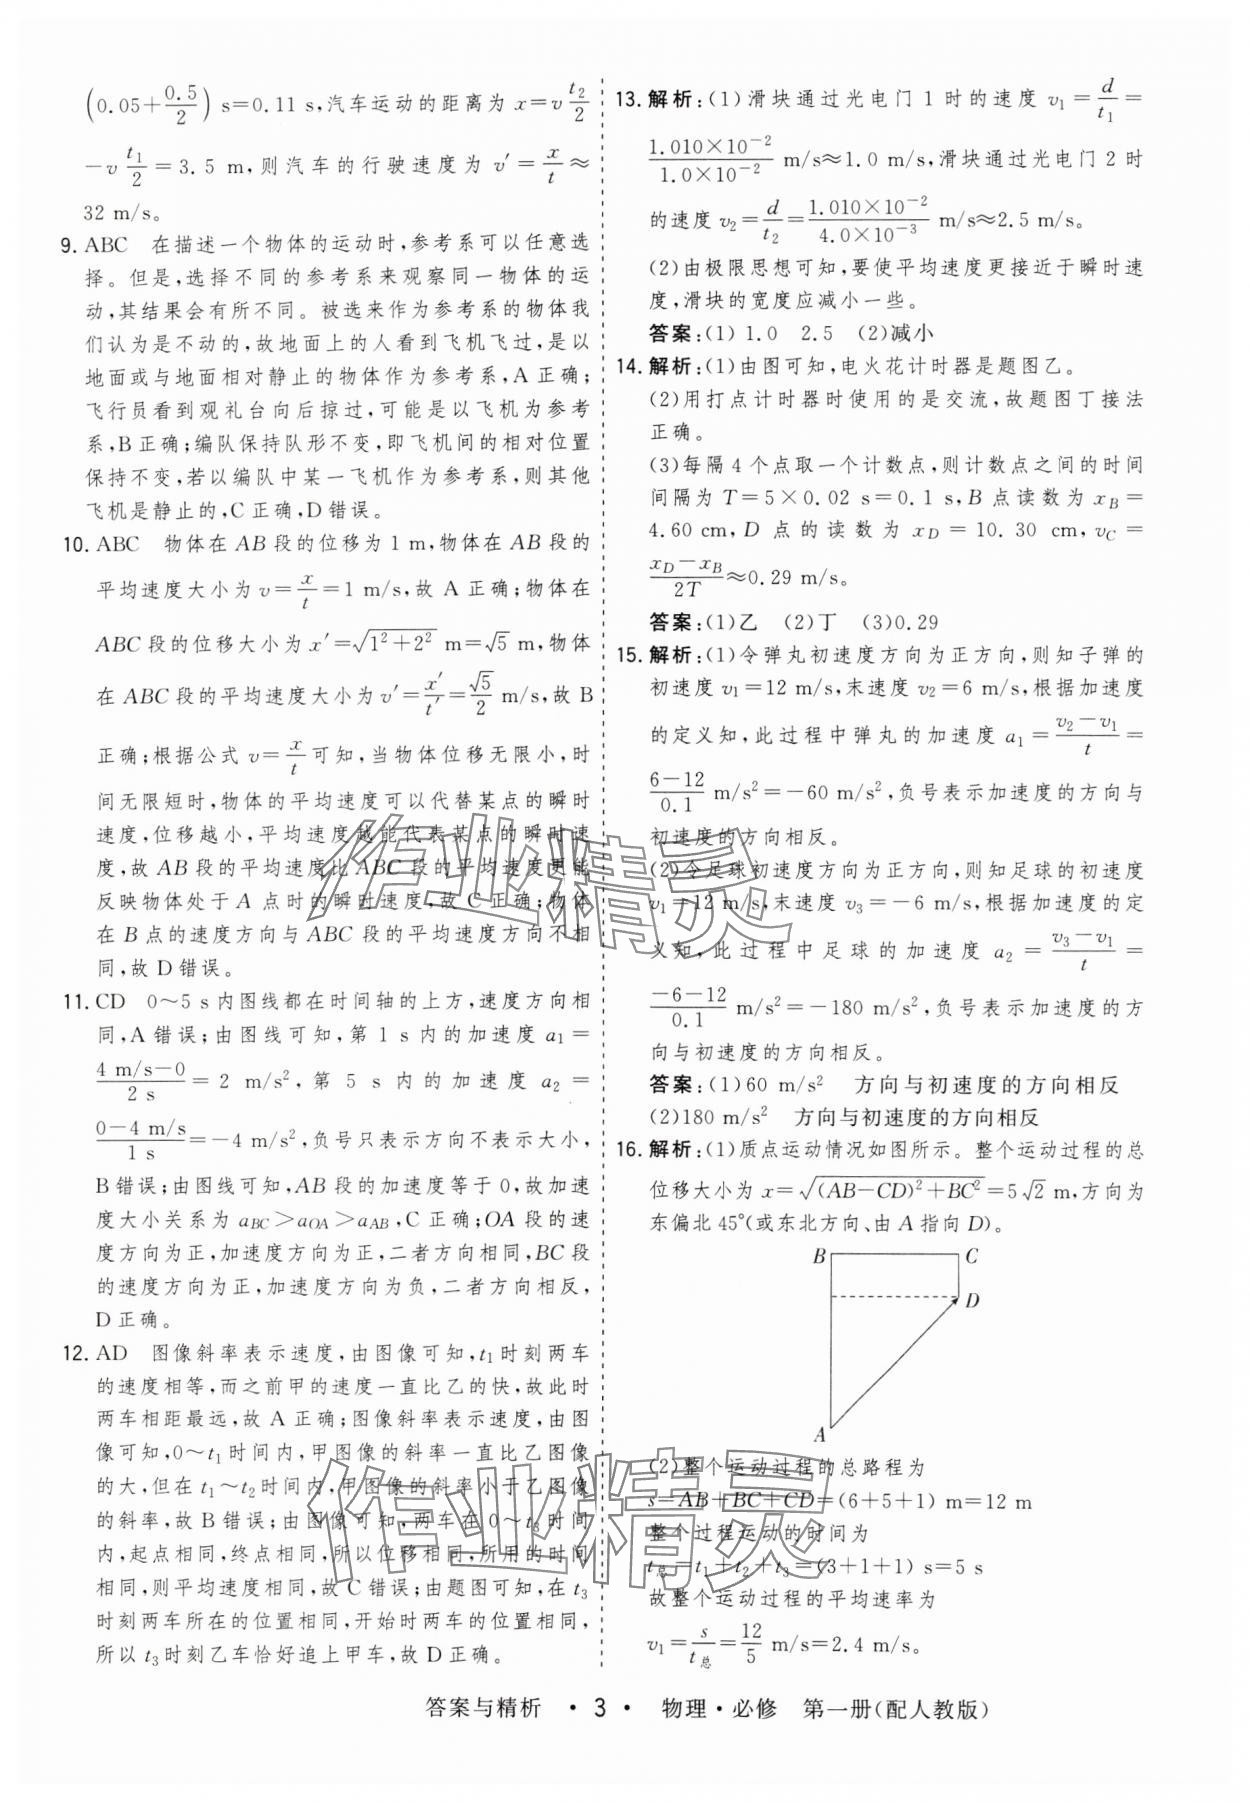 (0.05+0.5/2) s=0.11 s,汽车运动的距离为 x=v t₂/2
-v t₁/2=3.5 m,则汽车的行驶速度为 v′=x/t≈
32 m/s。
9. ABC 在描述一个物体的运动时,参考系可以任意选
择。但是,选择不同的参考系来观察同一物体的运
动,其结果会有所不同。被选来作为参考系的物体我
们认为是不动的,故地面上的人看到飞机飞过,是以
地面或与地面相对静止的物体作为参考系,A正确;
飞行员看到观礼台向后掠过,可能是以飞机为参考
系,B正确;编队保持队形不变,即飞机间的相对位置
保持不变,若以编队中某一飞机作为参考系,则其他
飞机是静止的,C正确,D错误。
10. ABC 物体在AB段的位移为1 m,物体在AB段的
平均速度大小为 v=x/t=1 m/s,故A正确;物体在
ABC段的位移大小为 x′=√(1²+2²) m=√5 m,物体
在ABC段的平均速度大小为 v′=x′/t′=√5/2 m/s,故B
正确;根据公式 v=x/t 可知,当物体位移无限小,时
间无限短时,物体的平均速度可以代替某点的瞬时
速度,位移越小,平均速度越能代表某点的瞬时速
度,故AB段的平均速度比ABC段的平均速度更能
反映物体处于A点时的瞬时速度,故C正确;物体
在B点的速度方向与ABC段的平均速度方向不相
同,故D错误。
11. CD 0～5 s内图线都在时间轴的上方,速度方向相
同,A错误;由图线可知,第1 s内的加速度 a₁=
(4 m/s-0)/2 s=2 m/s²,第5 s内的加速度 a₂=
(0-4 m/s)/1 s=-4 m/s²,负号只表示方向不表示大小,
B错误;由图线可知,AB段的加速度等于0,故加速
度大小关系为 a_BC>a_OA>a_AB,C正确;OA段的速
度方向为正,加速度方向为正,二者方向相同,BC段
的速度方向为正,加速度方向为负,二者方向相反,
D正确。
12. AD 图像斜率表示速度,由图像可知,t₁时刻两车
的速度相等,而之前甲的速度一直比乙的快,故此时
两车相距最远,故A正确;图像斜率表示速度,由图
像可知,0～t₁时间内,甲图像的斜率一直比乙图像
的大,但在t₁～t₂时间内,甲图像的斜率小于乙图像
的斜率,故B错误;由图像可知,两车在0～t₃时间
内,起点相同,终点相同,所以位移相同,所用的时间
相同,则平均速度相同,故C错误;由题图可知,在t₃
时刻两车所在的位置相同,开始时两车的位置相同,
所以t₃时刻乙车恰好追上甲车,故D正确。
13. 解析:(1)滑块通过光电门1时的速度 v₁=d/t₁=
1.010×10⁻²/1.0×10⁻² m/s≈1.0 m/s,滑块通过光电门2时
的速度 v₂=d/t₂=1.010×10⁻²/4.0×10⁻³ m/s≈2.5 m/s。
(2)由极限思想可知,要使平均速度更接近于瞬时速
度,滑块的宽度应减小一些。
答案:(1)1.0 2.5 (2)减小
14. 解析:(1)由图可知,电火花计时器是题图乙。
(2)用打点计时器时使用的是交流,故题图丁接法
正确。
(3)每隔4个点取一个计数点,则计数点之间的时间
间隔为 T=5×0.02 s=0.1 s,B点读数为 x_B=
4.60 cm,D点的读数为 x_D=10.30 cm,v_C=
(x_D-x_B)/2T≈0.29 m/s。
答案:(1)乙 (2)丁 (3)0.29
15. 解析:(1)令弹丸初速度方向为正方向,则知子弹的
初速度 v₁=12 m/s,末速度 v₂=6 m/s,根据加速度
的定义知,此过程中弹丸的加速度 a₁=(v₂-v₁)/t=
(6-12)/0.1 m/s²=-60 m/s²,负号表示加速度的方向与
初速度的方向相反。
(2)令足球初速度方向为正方向,则知足球的初速度
v₁=12 m/s,末速度 v₃=-6 m/s,根据加速度的定
义知,此过程中足球的加速度 a₂=(v₃-v₁)/t=
(-6-12)/0.1 m/s²=-180 m/s²,负号表示加速度的方
向与初速度的方向相反。
答案:(1)60 m/s² 方向与初速度的方向相反
(2)180 m/s² 方向与初速度的方向相反
16. 解析:(1)质点运动情况如图所示。整个运动过程的总
位移大小为 x=√((AB-CD)²+BC²)=5√2 m,方向为
东偏北45°(或东北方向、由A指向D)。
B C
D
A
(2)整个运动过程的总路程为
s=AB+BC+CD=(6+5+1) m=12 m
整个过程运动的时间为
t总=t₁+t₂+t₃=(3+1+1) s=5 s
故整个运动过程的平均速率为
v₁=s/t总=12/5 m/s=2.4 m/s。
作业精灵
作业精灵
答案与精析 · 3 · 物理·必修 第一册(配人教版)